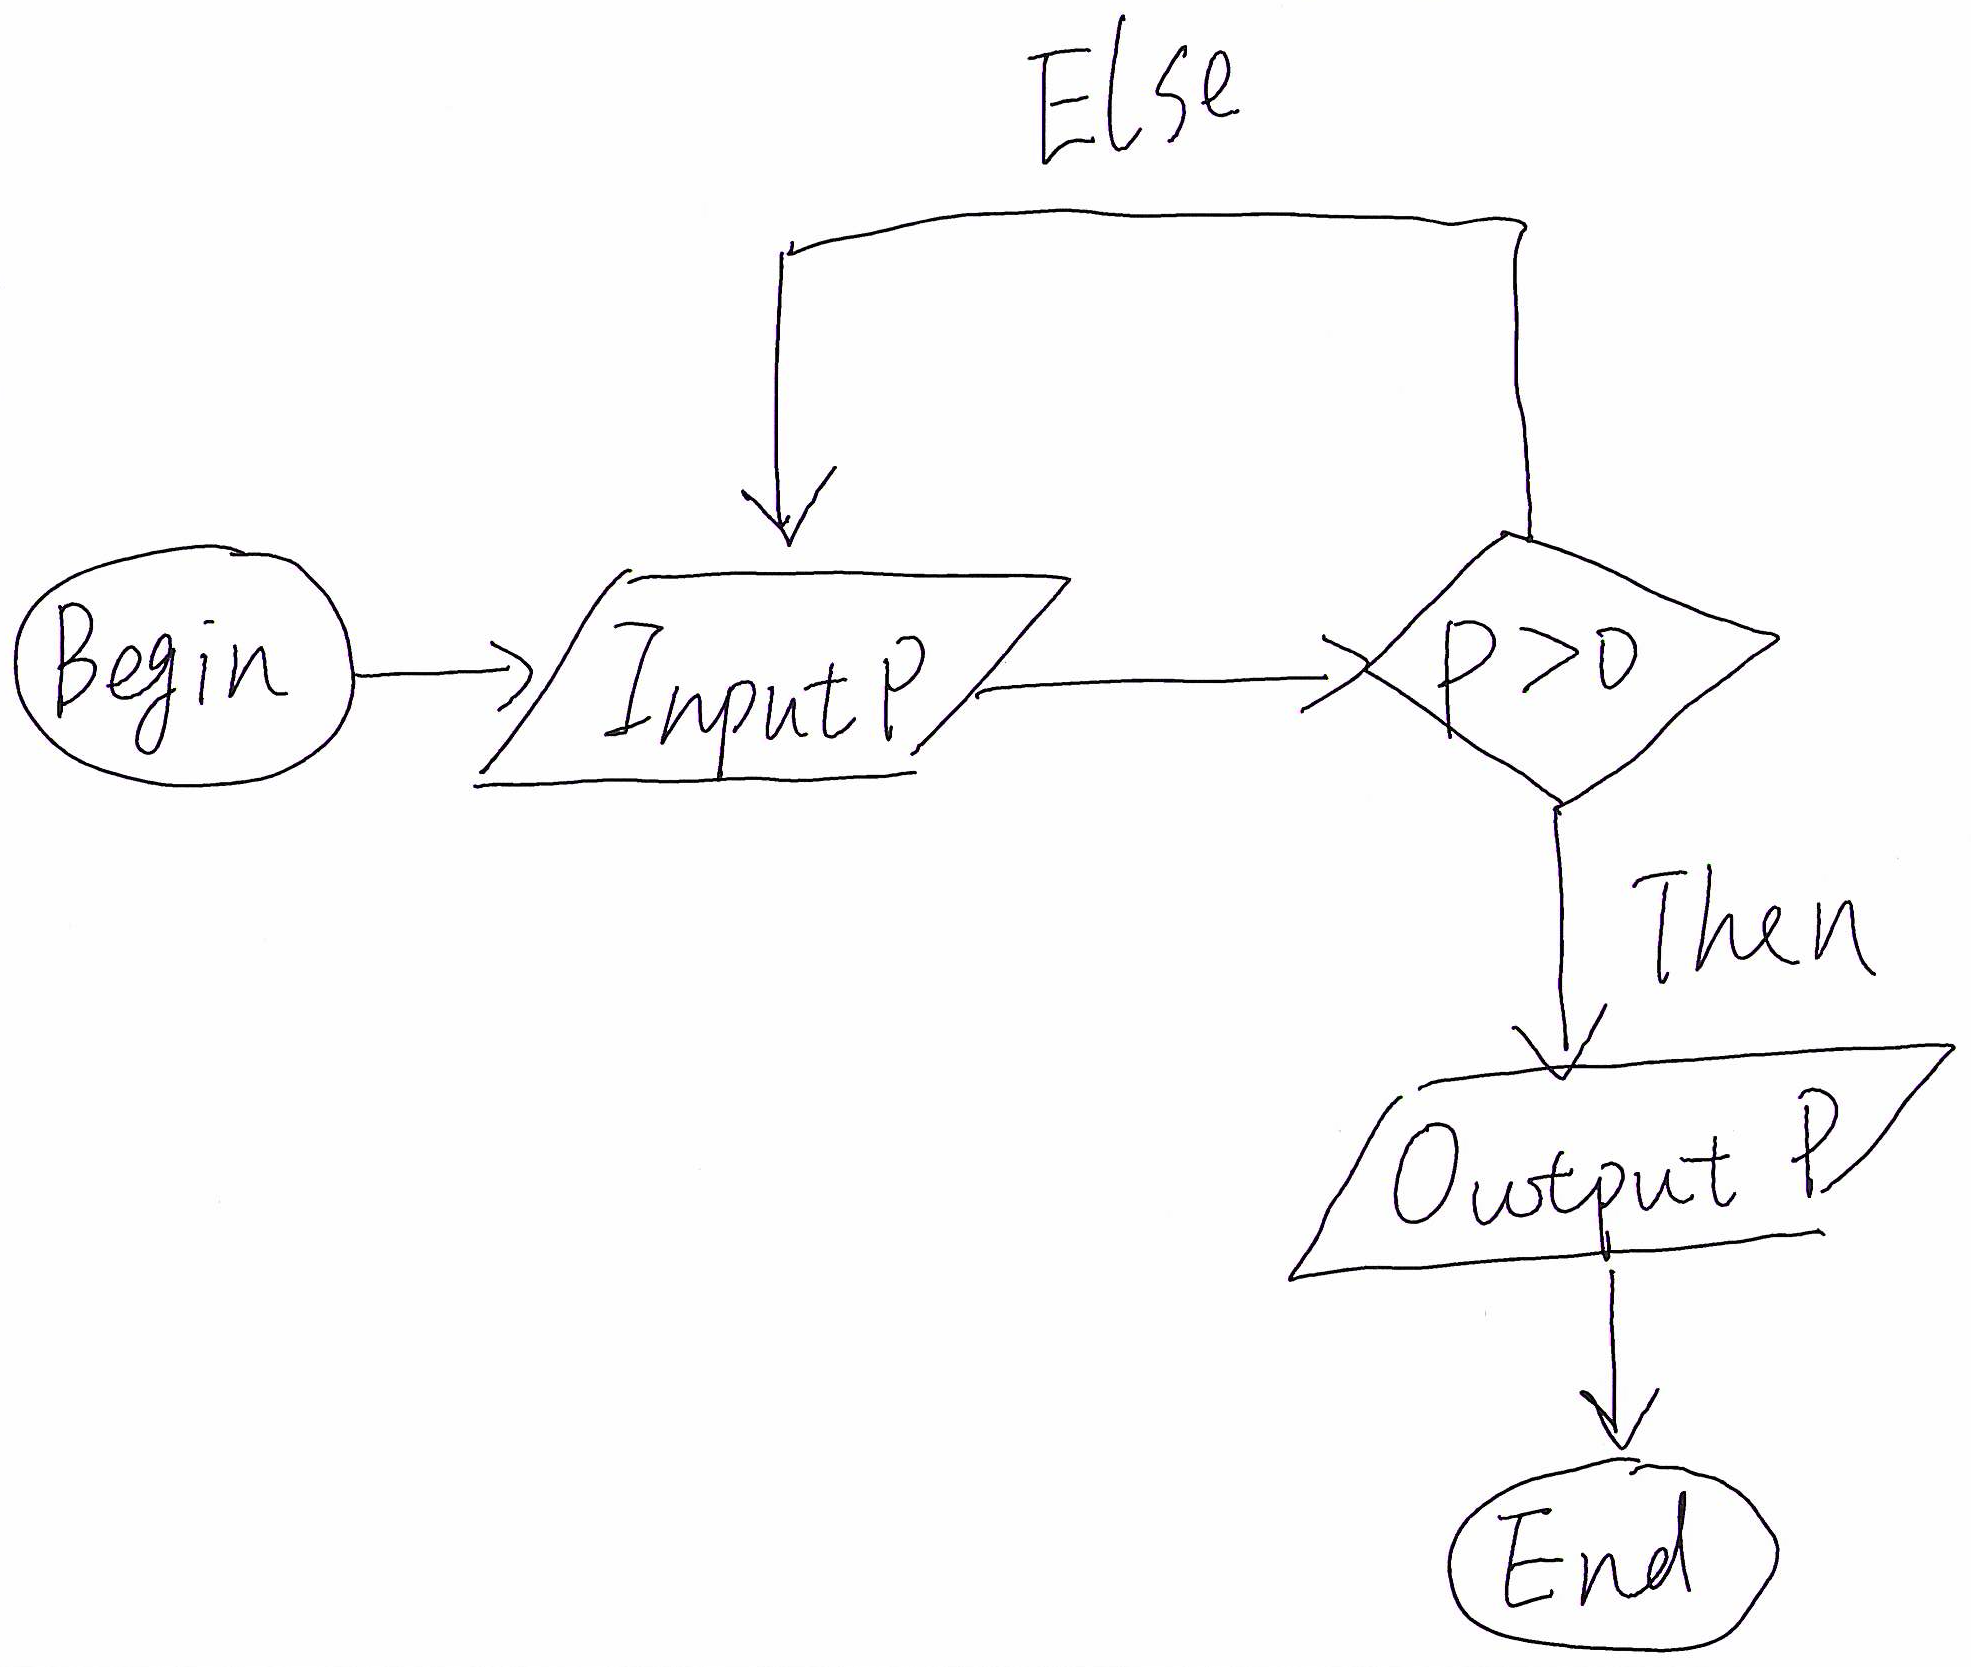 Else
Begin
Input P
P>0
Then
Output P
End